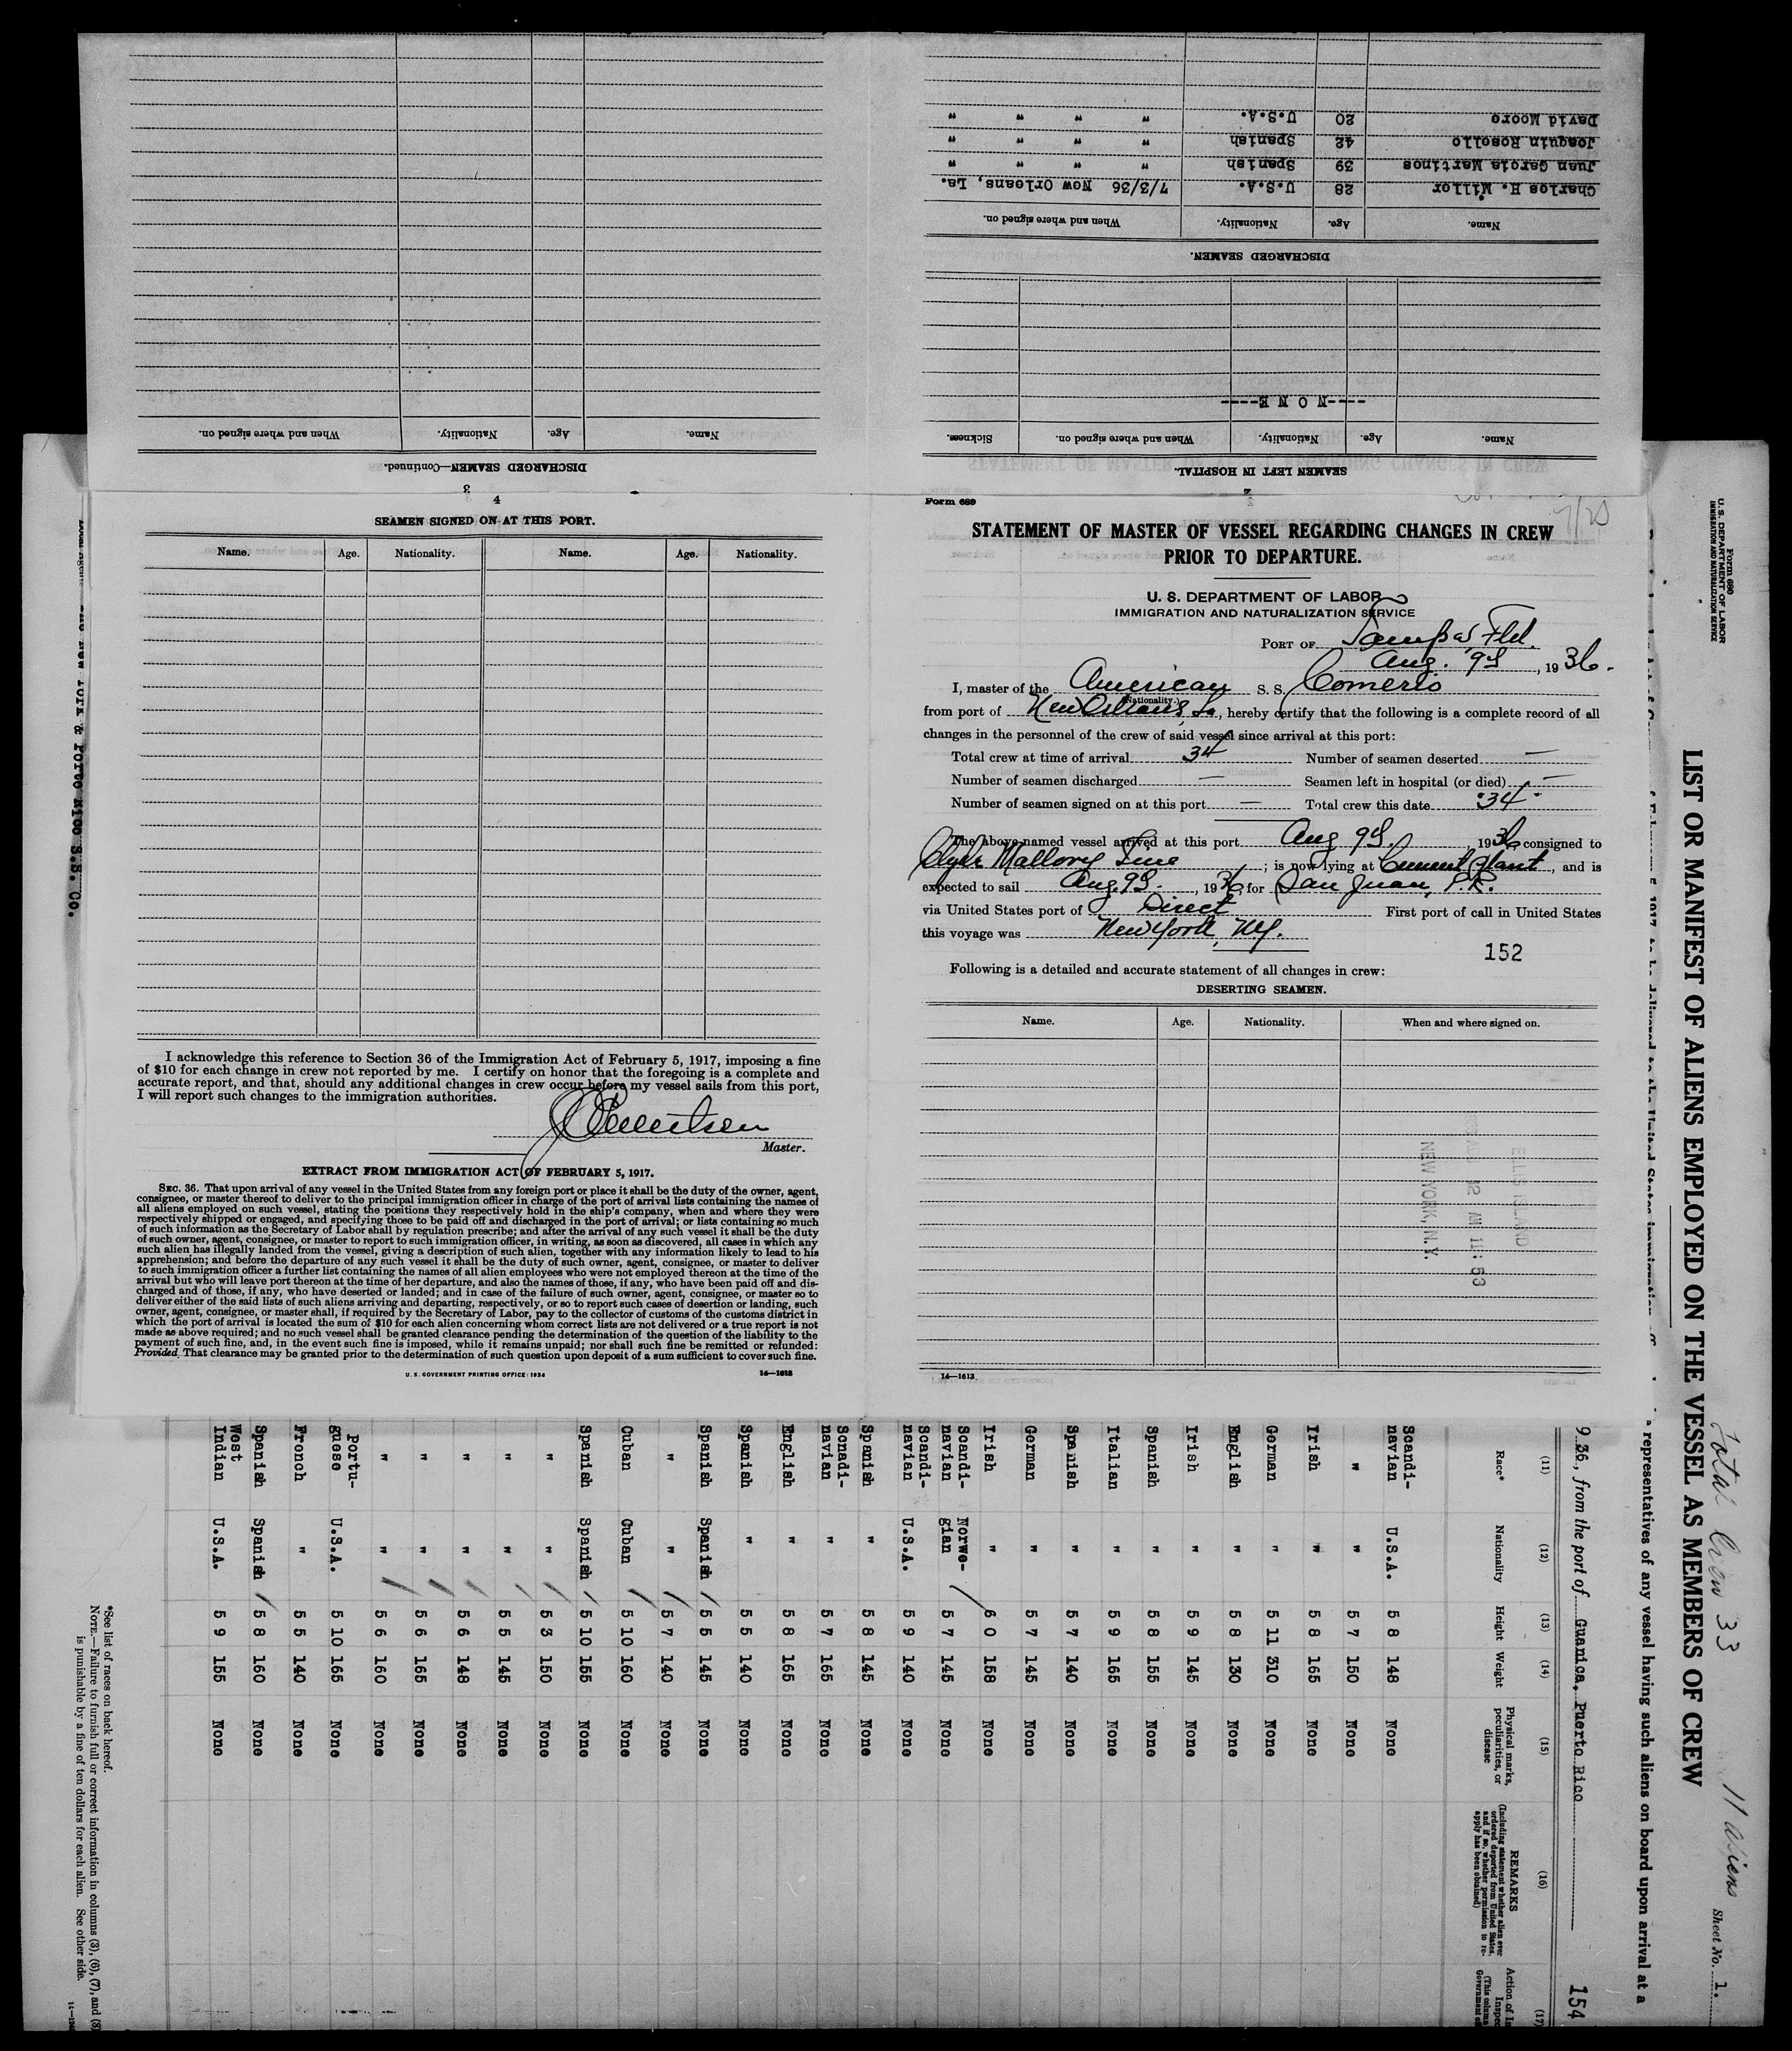 DISCHARGED SEAMEN—Continued.
Name. Age. Nationality. When and where signed on.
3
SEAMEN LEFT IN HOSPITAL.
Name. Age. Nationality. When and where signed on. Sickness.
----N O N E----
DISCHARGED SEAMEN.
Name. Age. Nationality. When and where signed on.
Charles H. Miller 28 U.S.A. 7/3/36 New Orleans, La.
Juan Garcia Martinos 39 Spanish " " " "
Joaquin Rosello 42 Spanish " " " "
David Moore 20 U.S.A. " " " "
2
4
SEAMEN SIGNED ON AT THIS PORT.
Name. Age. Nationality. Name. Age. Nationality.
I acknowledge this reference to Section 36 of the Immigration Act of February 5, 1917, imposing a fine
of $10 for each change in crew not reported by me. I certify on honor that the foregoing is a complete and
accurate report, and that, should any additional changes in crew occur before my vessel sails from this port,
I will report such changes to the immigration authorities.
Master.
EXTRACT FROM IMMIGRATION ACT OF FEBRUARY 5, 1917.
SEC. 36. That upon arrival of any vessel in the United States from any foreign port or place it shall be the duty of the owner, agent,
consignee, or master thereof to deliver to the principal immigration officer in charge of the port of arrival lists containing the names of
all aliens employed on such vessel, stating the positions they respectively hold in the ship's company, when and where they were
respectively shipped or engaged, and specifying those to be paid off and discharged in the port of arrival; or lists containing so much
of such information as the Secretary of Labor shall by regulation prescribe; and after the arrival of any such vessel it shall be the duty
of such owner, agent, consignee, or master to report to such immigration officer, in writing, as soon as discovered, all cases in which any
such alien has illegally landed from the vessel, giving a description of such alien, together with any information likely to lead to his
apprehension; and before the departure of any such vessel it shall be the duty of such owner, agent, consignee, or master to deliver
to such immigration officer a further list containing the names of all alien employees who were not employed thereon at the time of the
arrival but who will leave port thereon at the time of her departure, and also the names of those, if any, who have been paid off and dis-
charged and of those, if any, who have deserted or landed; and in case of the failure of such owner, agent, consignee, or master so to
deliver either of the said lists of such aliens arriving and departing, respectively, or so to report such cases of desertion or landing, such
owner, agent, consignee, or master shall, if required by the Secretary of Labor, pay to the collector of customs of the customs district in
which the port of arrival is located the sum of $10 for each alien concerning whom correct lists are not delivered or a true report is not
made as above required; and no such vessel shall be granted clearance pending the determination of the question of the liability to the
payment of such fine, and, in the event such fine is imposed, while it remains unpaid; nor shall such fine be remitted or refunded:
Provided, That clearance may be granted prior to the determination of such question upon deposit of a sum sufficient to cover such fine.
U. S. GOVERNMENT PRINTING OFFICE: 1934 14—1613
Form 689
7/20
STATEMENT OF MASTER OF VESSEL REGARDING CHANGES IN CREW
PRIOR TO DEPARTURE.
U. S. DEPARTMENT OF LABOR
IMMIGRATION AND NATURALIZATION SERVICE
PORT OF Tampa, Fla.
Aug. 9th, 1936.
I, master of the American S. S. Comerio
(Nationality.)
from port of New Orleans, La., hereby certify that the following is a complete record of all
changes in the personnel of the crew of said vessel since arrival at this port:
Total crew at time of arrival 34 Number of seamen deserted —
Number of seamen discharged — Seamen left in hospital (or died) —
Number of seamen signed on at this port — Total crew this date 34
The above-named vessel arrived at this port Aug 9th, 1936 consigned to
Clyde Mallory Line; is now lying at Cement Plant, and is
expected to sail Aug. 9th, 1936 for San Juan, P.R.
via United States port of Direct First port of call in United States
this voyage was New York, NY.
152
Following is a detailed and accurate statement of all changes in crew:
DESERTING SEAMEN.
Name. Age. Nationality. When and where signed on.
ELLIS ISLAND
12 AM 11:53
NEW YORK, N.Y.
14—1613
New York & Porto Rico S.S. Co.
Form 680
U. S. DEPARTMENT OF LABOR
IMMIGRATION AND NATURALIZATION SERVICE
Total Crew 33 11 Aliens Sheet No. 1.
LIST OR MANIFEST OF ALIENS EMPLOYED ON THE VESSEL AS MEMBERS OF CREW
representatives of any vessel having such aliens on board upon arrival at a
9 36, from the port of Guanica, Puerto Rico
154
(11) (12) (13) (14) (15) (16) (17)
Race* Nationality Height Weight Physical marks, peculiarities, or disease REMARKS
(Including statement whether alien ever ordered deported from United States, and if so, whether permission to reapply has been obtained)
Scandi-navian U.S.A. 5 8 148 None
" " 5 7 150 None
Irish " 5 8 165 None
German " 5 11 310 None
English " 5 8 130 None
Irish " 5 9 145 None
Spanish " 5 8 155 None
Italian " 5 9 165 None
Spanish " 5 7 140 None
German " 5 7 145 None
Irish " 6 0 158 None
Scandi-navian Norwe-gian 5 7 145 None
Scandi-navian U.S.A. 5 9 140 None
Spanish " 5 8 145 None
Scandi-navian " 5 7 165 None
English " 5 8 165 None
Spanish " 5 5 140 None
Spanish Spanish 5 5 145 None
" " 5 7 140 None
Cuban Cuban 5 10 160 None
Spanish Spanish 5 10 155 None
" " 5 3 150 None
" " 5 5 145 None
" " 5 6 148 None
" " 5 6 165 None
" " 5 6 160 None
Portu-guese U.S.A. 5 10 165 None
French " 5 5 140 None
Spanish Spanish 5 8 160 None
West Indian U.S.A. 5 9 155 None
*See list of races on back hereof.
NOTE.—Failure to furnish full or correct information in columns (3), (6), (7), and (8)
is punishable by a fine of ten dollars for each alien. See other side.